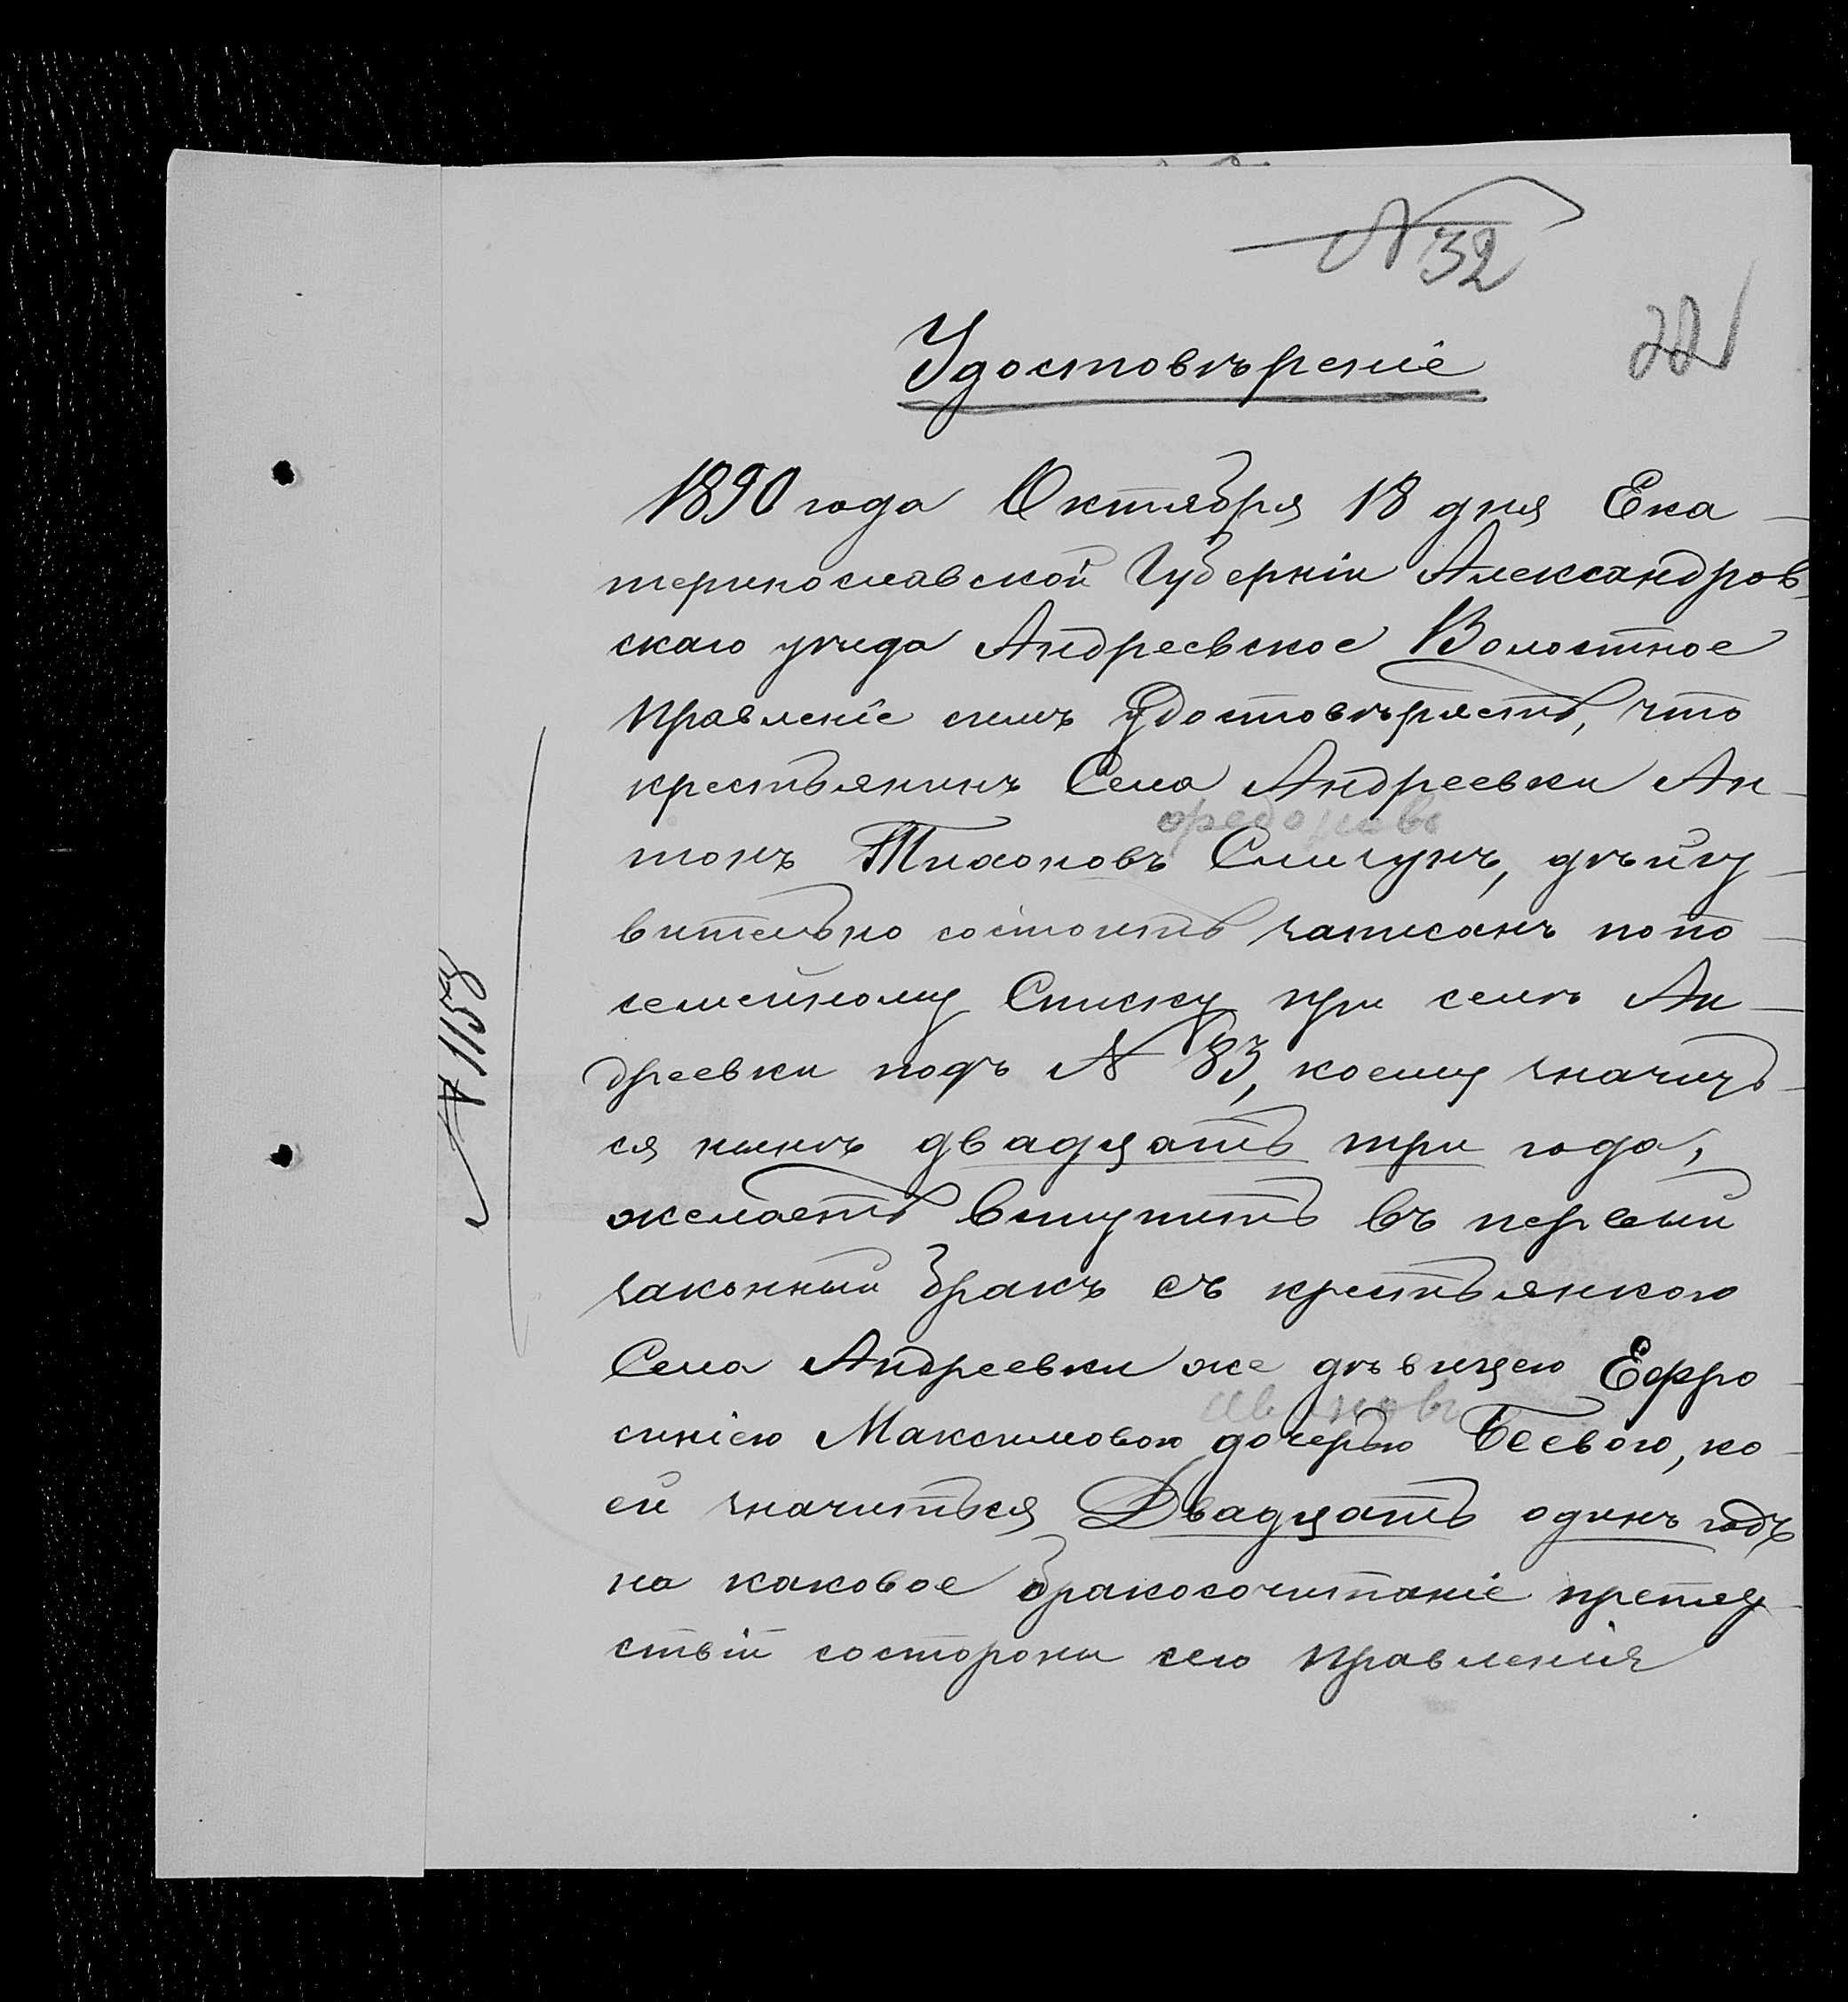 № 32
221
Удостовѣреніе
1890 года Октября 18 дня Ека-
теринославской Губерніи Александров-
скаго уѣзда Андреевское Волостное
Правленіе симъ удостовѣряетъ, что
крестьянинъ Села Андреевки Ан-
тонъ Тихоновъ Смигунъ, дѣйсу-
вительно состоитъ записанъ по по-
семейному Списку при селѣ Ан-
дреевки подъ № 83, коему значить-
ся нынѣ двадцать три года,
желаетъ вступить въ первый
законный бракъ съ крестьянкою
Села Андреевки же дѣвицею Ефро-
синіею Максимовою дочерью Беевою, ко-
ей значиться Двадцать одинъ годъ
на каковое бракосочитаніе препяд-
ствій состороны сего Правленія
№ 1158